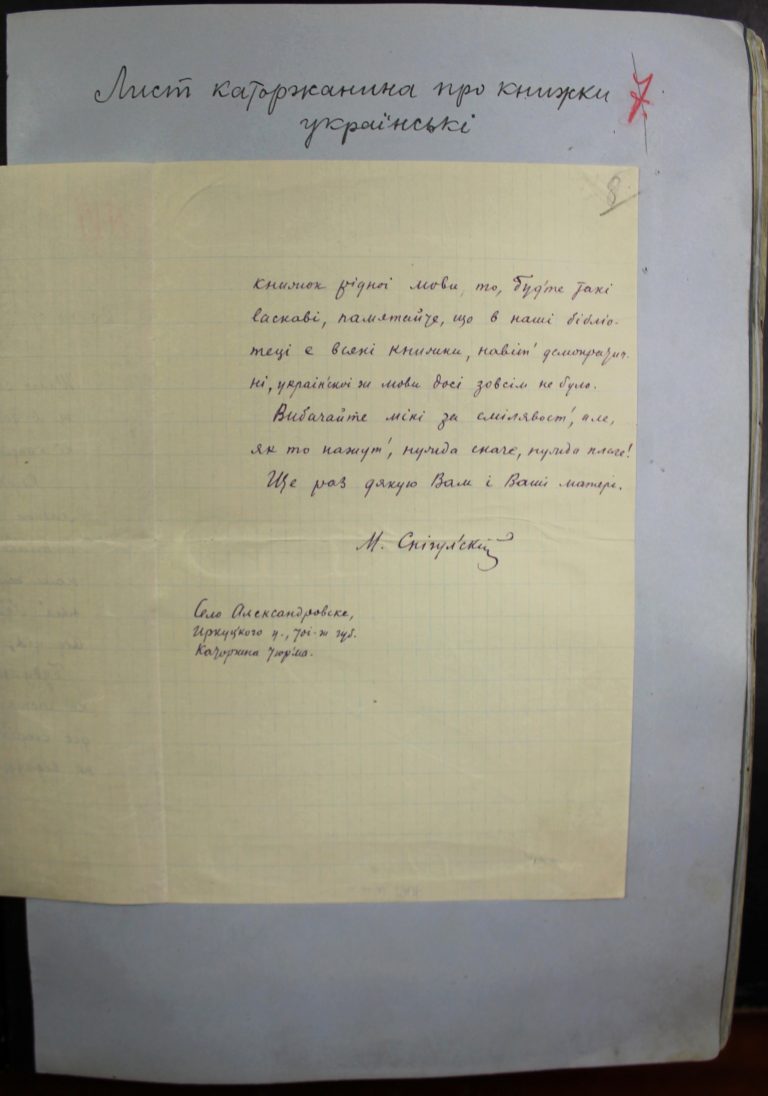 Лист каторжанина про книжки
українські
7
8
книжок рідної мови, то, буд'те такі
ласкаві, памятайте, що в наші бібліо-
теці є всякі книжки, навіт' демократич-
ні, україн'скої ж мови досі зовсім не було.
Вибачайте міні за смілявост', але,
як то кажут', нужда скаче, нужда плаче!
Ще раз дякую Вам і Ваші матері.
М. Снігул'скій
Село Александровске,
Иркуцкого у., тоі-ж губ.
Каторжна тюр'ма.